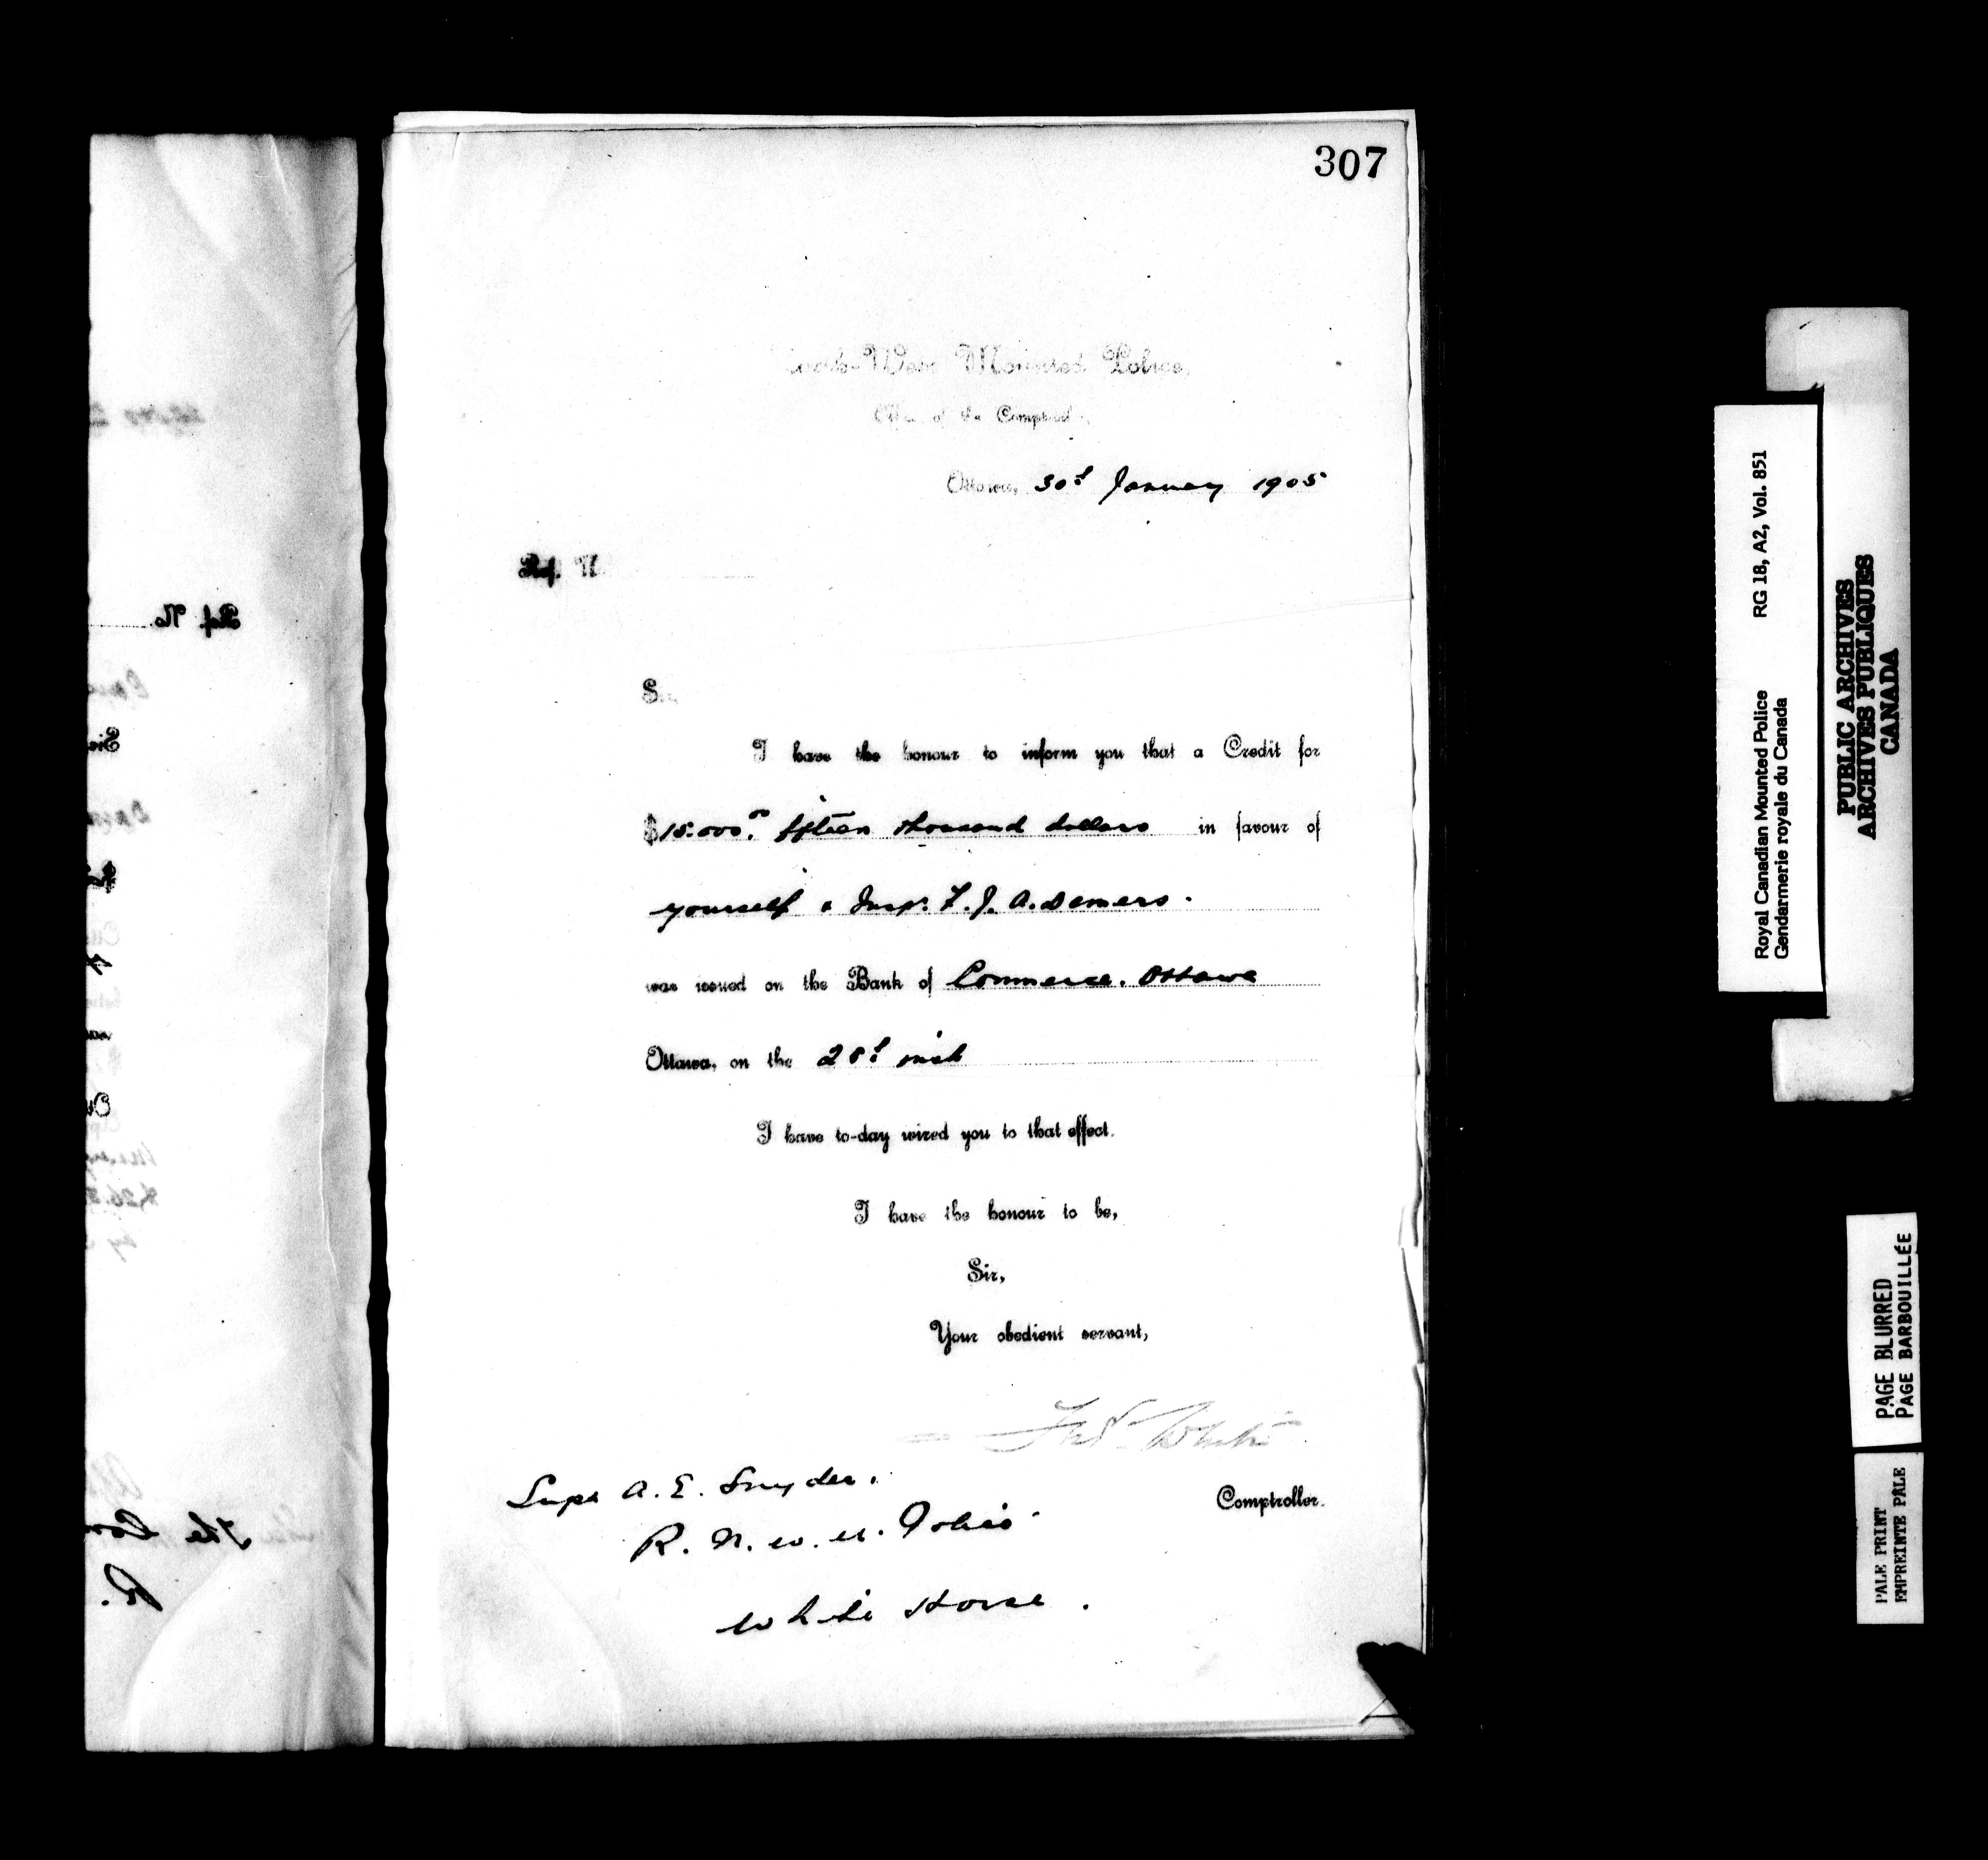 307
North-West Mounted Police,
Office of the Comptroller,
Ottawa, 30th January 1905
Ref. N
Sir,
I have the honour to inform you that a Credit for
$15.000.00 fifteen thousand dollars in favour of
yourself & Insp. F. J. A. Demers.
was issued on the Bank of Commerce. Ottawa
Ottawa, on the 28th inst
I have to-day wired you to that effect.
I have the honour to be,
Sir,
Your obedient servant,
Fred White
Comptroller.
Supt A. E. Snyder.
R. N. W. M. Police
White Horse.
Ref. No.
Sir
The Com
R.
Royal Canadian Mounted Police RG 18, A2, Vol. 851
Gendarmerie royale du Canada
PUBLIC ARCHIVES
ARCHIVES PUBLIQUES
CANADA
PAGE BLURRED
PAGE BARBOUILLÉE
PALE PRINT
EMPREINTE PALE